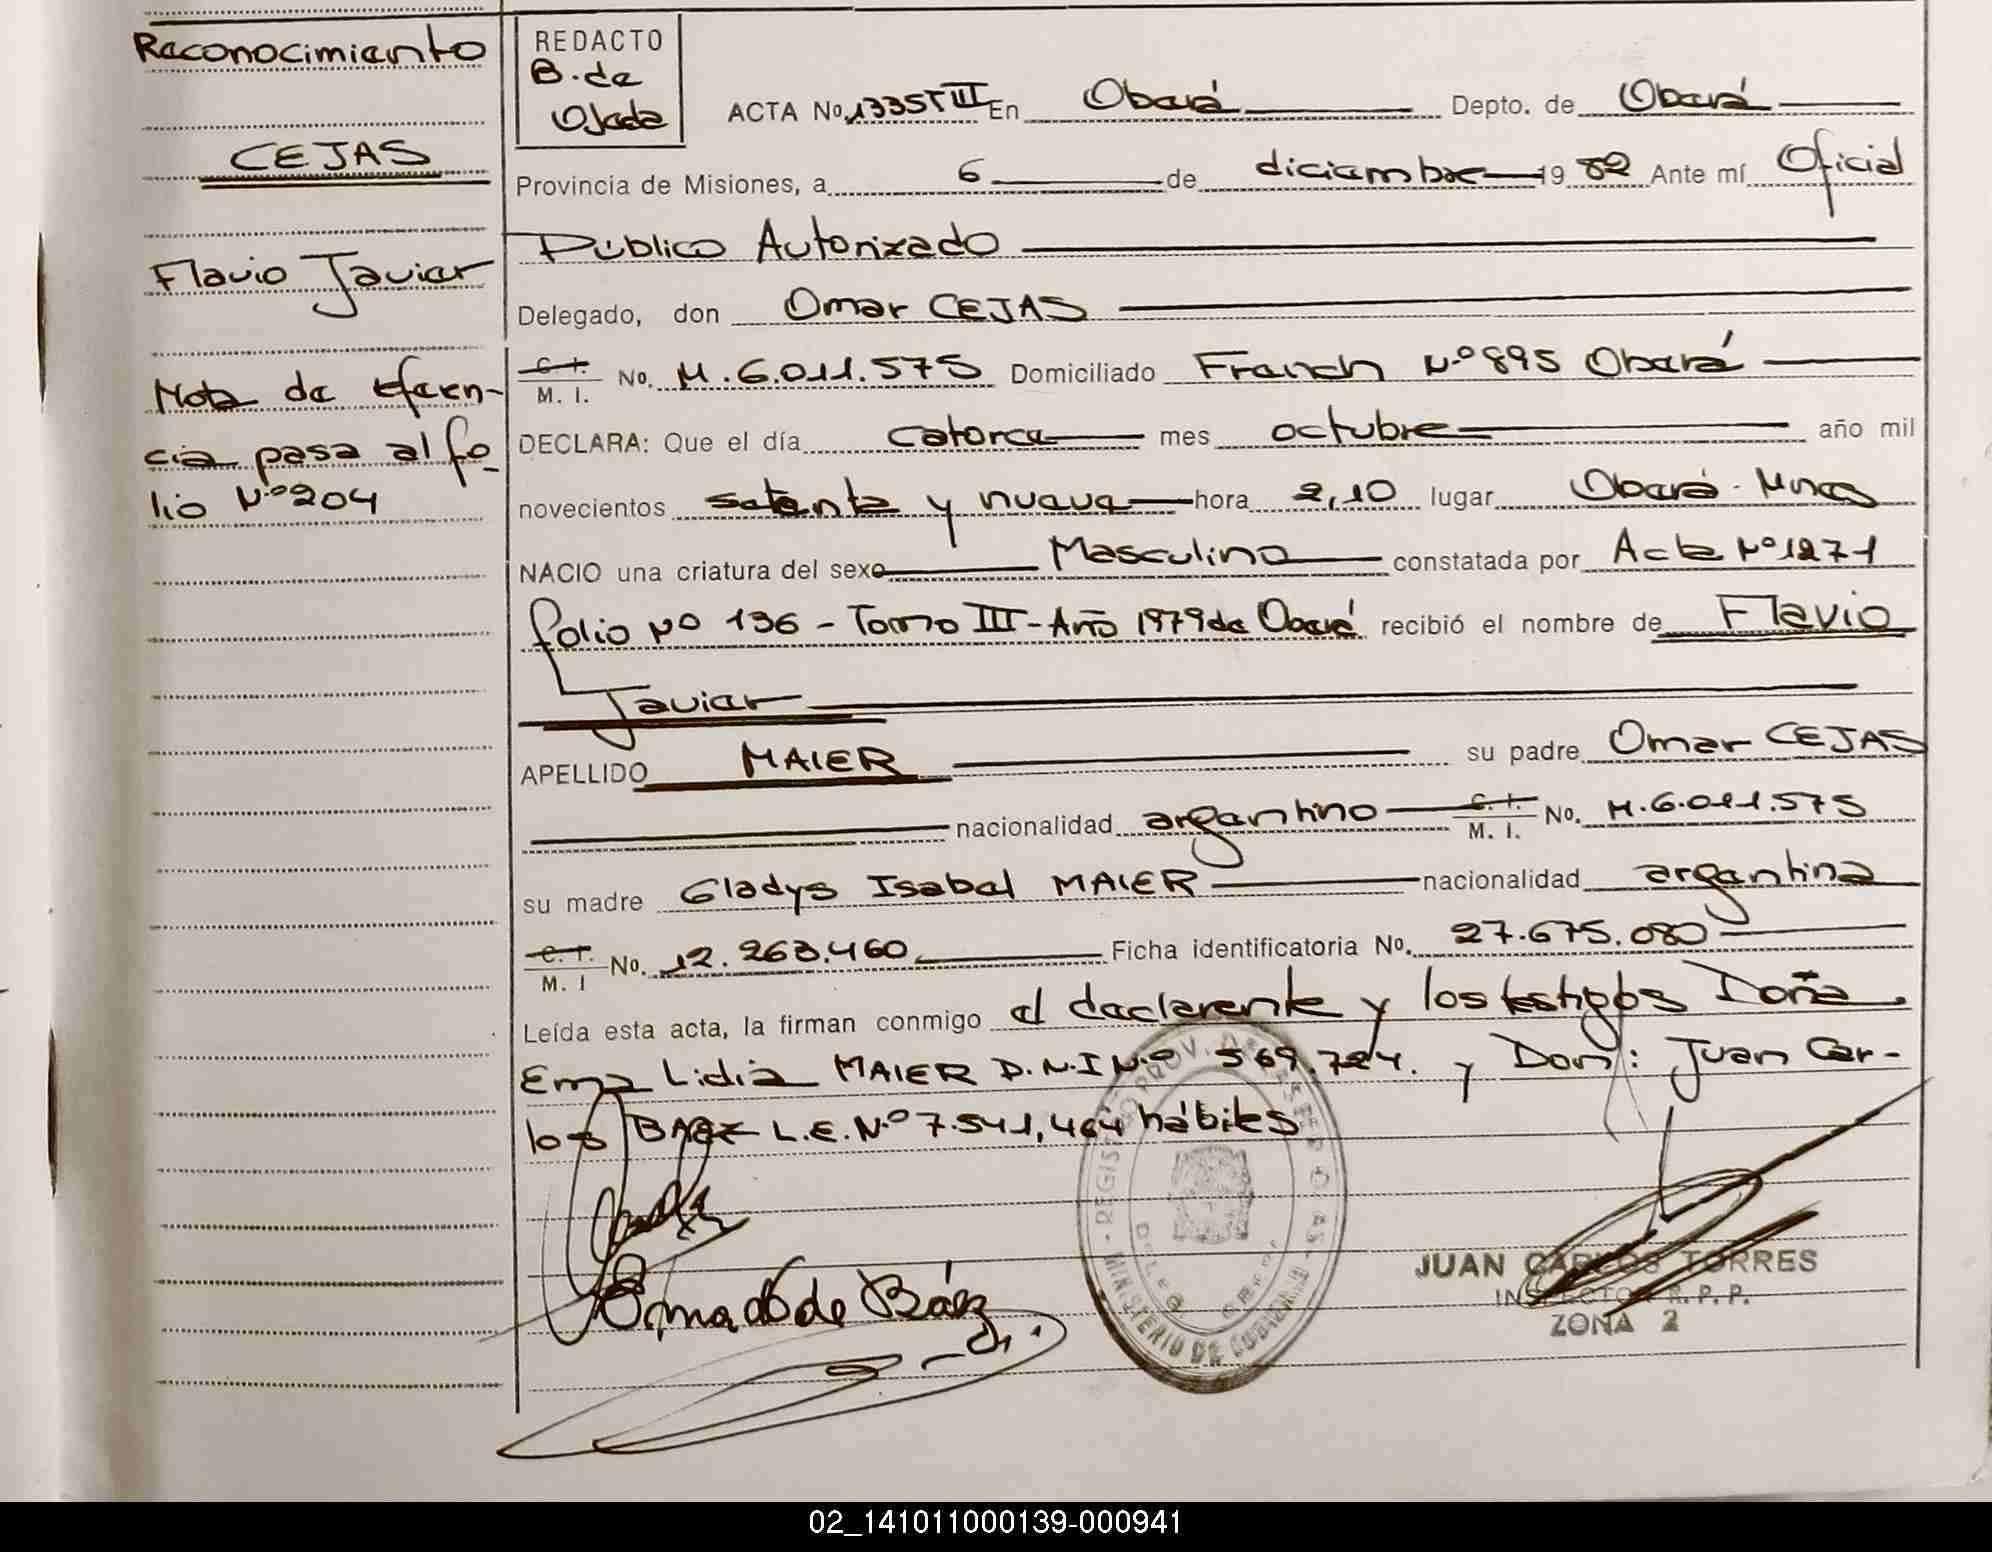 Reconocimiento
CEJAS
Flavio Javier
Nota de referen-
cia pasa al fo-
lio Nº 204
REDACTO
B. de
Ojeda
ACTA No. 1335 T III En Oberá Depto. de Oberá
Provincia de Misiones, a 6 de diciembre 1982 Ante mí Oficial
Público Autorizado
Delegado, don Omar CEJAS
C. I. M. I. No. M. 6.011.575 Domiciliado Franch Nº 895 Oberá
DECLARA: Que el día catorce mes octubre año mil
novecientos setenta y nueve hora 2,10 lugar Oberá - Mnes
NACIO una criatura del sexo Masculino constatada por Acta Nº 1271
folio Nº 136 - Tomo III - Año 1979 de Oberá recibió el nombre de Flavio
Javier
APELLIDO MAIER su padre Omar CEJAS
nacionalidad argentino C. I. M. I. No. M. 6.011.575
su madre Gladys Isabel MAIER nacionalidad argentina
C. I. M. I No. 12.263.460 Ficha identificatoria No. 27.675.080
Leída esta acta, la firman conmigo el declarante y los testigos Doña
Ema Lidia MAIER D.N.I Nº 569.724. y Don: Juan Car-
los BAEZ L.E. Nº 7.541,464 hábiles
Ema de Báez
REGISTRO PROV. DE LAS PERSONAS
MINISTERIO DE GOBIERNO
JUAN CARLOS TORRES
INSPECTOR R. P. P.
ZONA 2
02_141011000139-000941